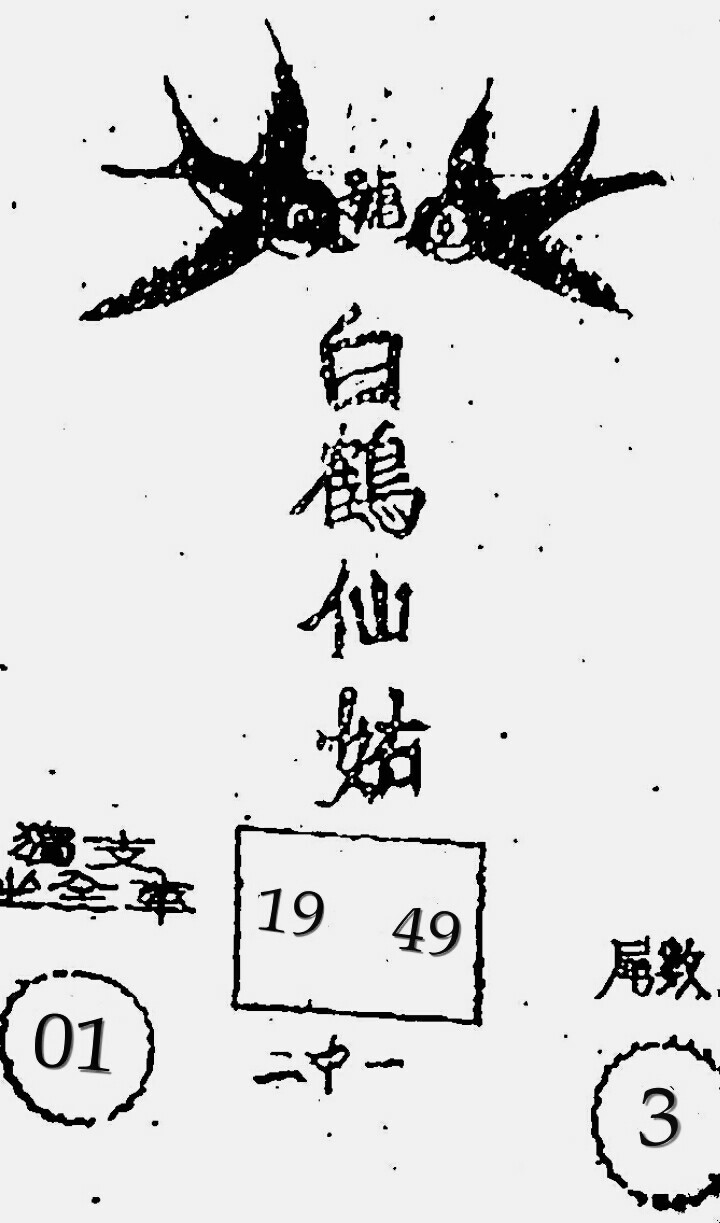 白鶴仙姑
獨支
坐全車
19 49
01
二中一
尾數
3